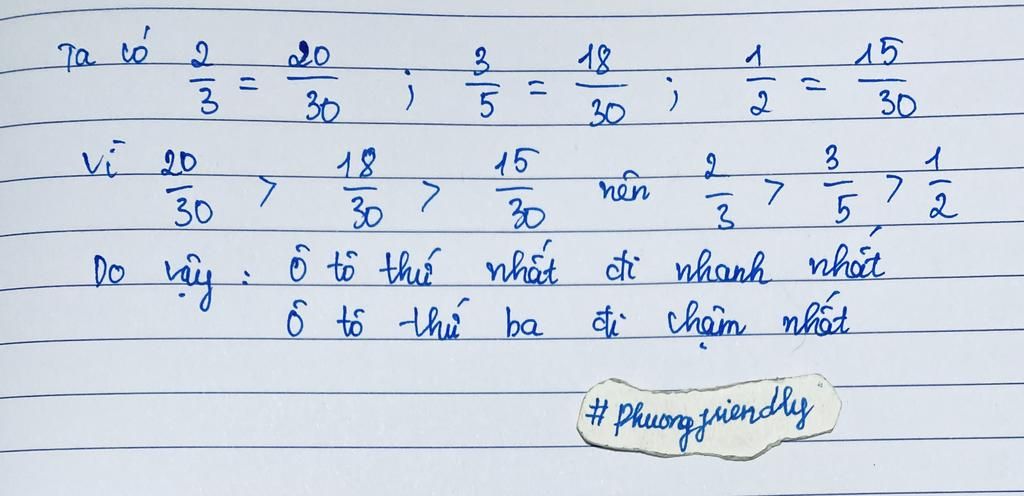 Ta có 2/3 = 20/30 ; 3/5 = 18/30 ; 1/2 = 15/30
Vì 20/30 > 18/30 > 15/30 nên 2/3 > 3/5 > 1/2
Do vậy : Ô tô thứ nhất đi nhanh nhất
Ô tô thứ ba đi chậm nhất
#Phuongfriendly